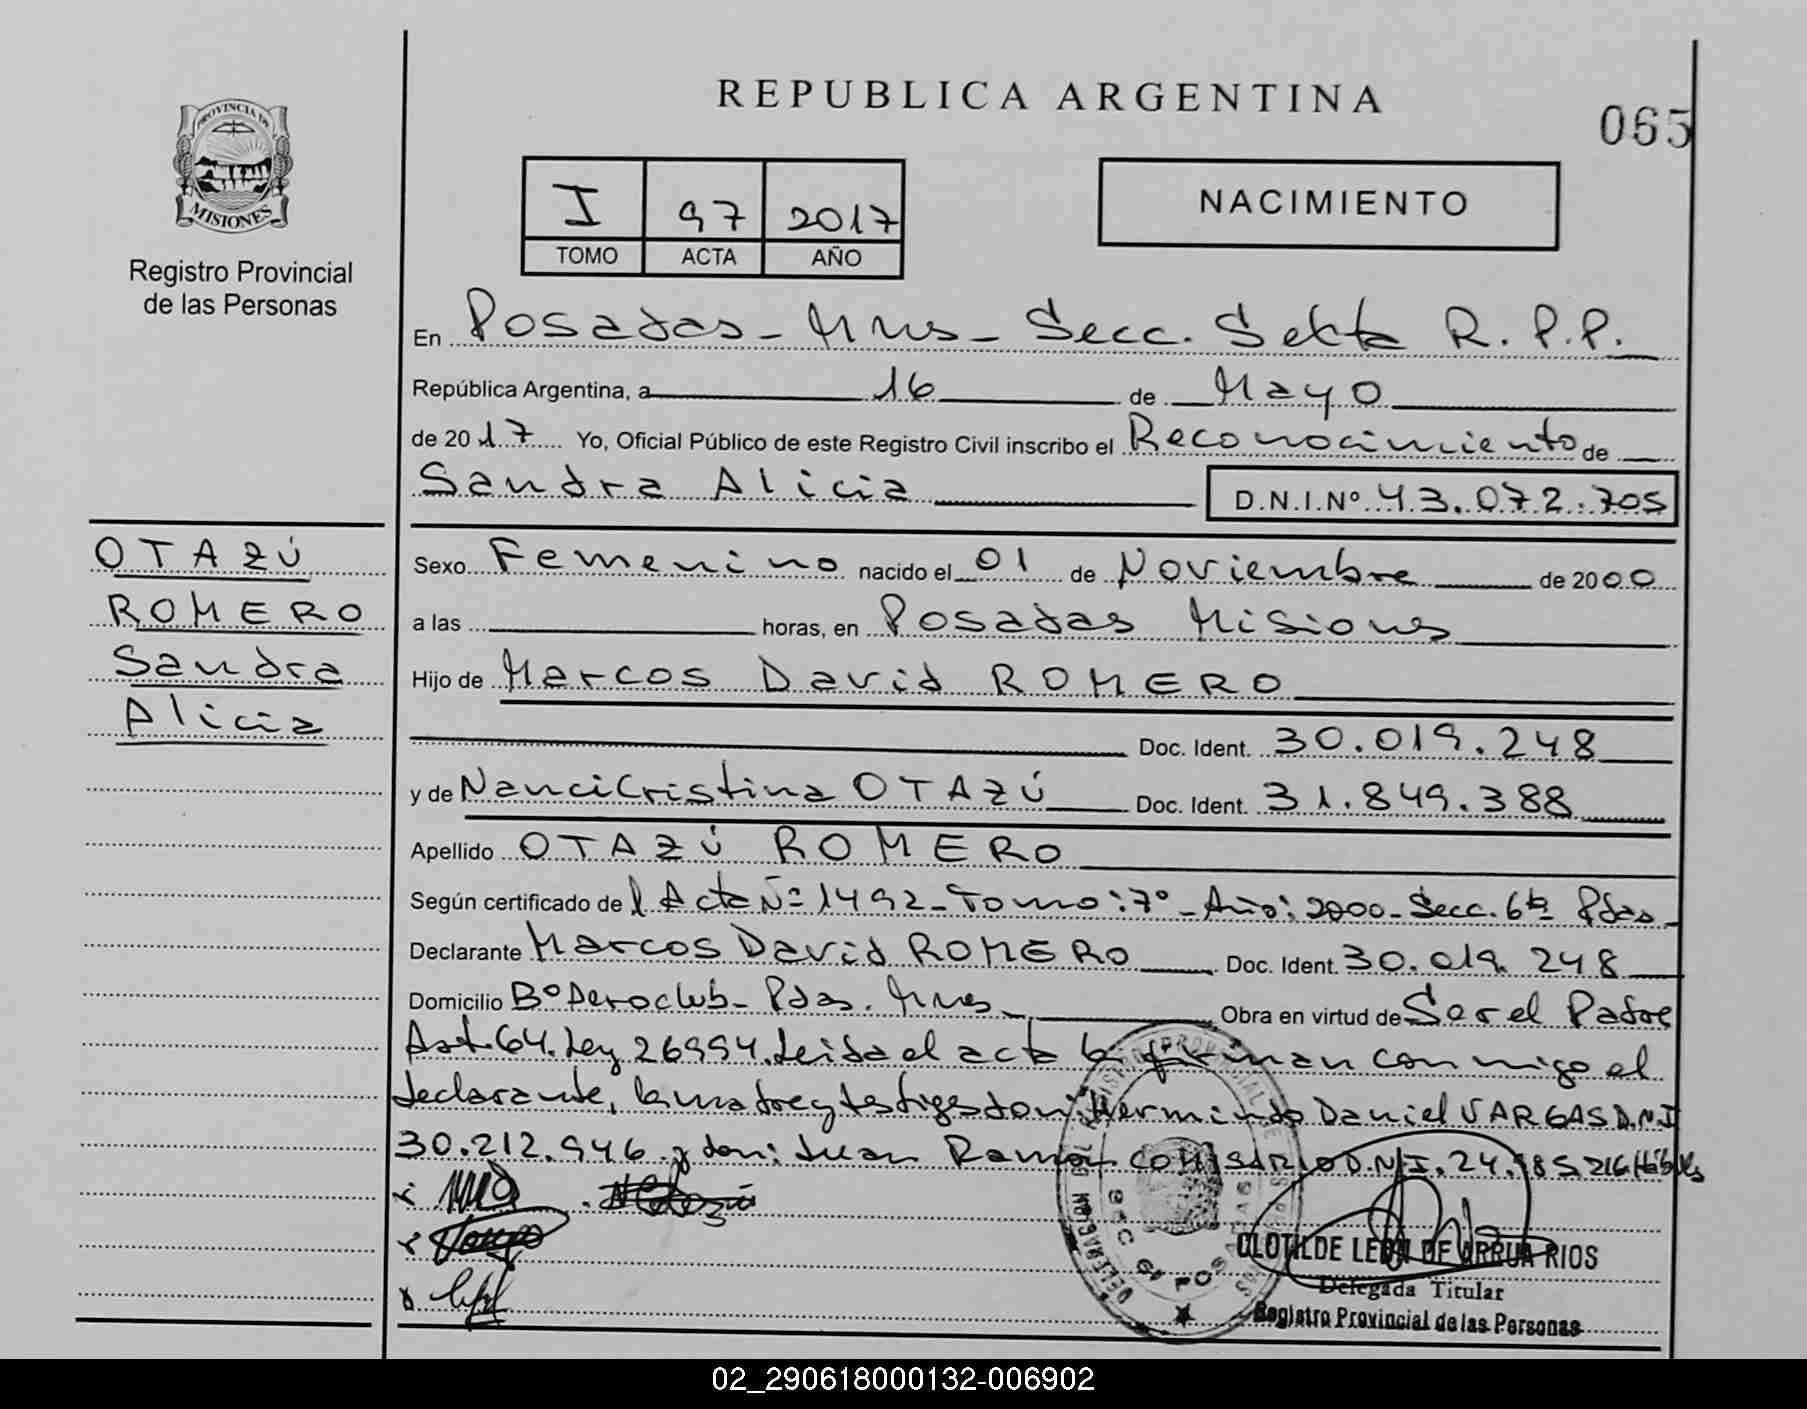 REPUBLICA ARGENTINA
065
PROVINCIA DE
MISIONES
Registro Provincial
de las Personas
I 97 2017
TOMO ACTA AÑO
NACIMIENTO
En Posadas - Mnes - Secc. Sexta R.P.P.
República Argentina, a 16 de Mayo
de 2017 Yo, Oficial Público de este Registro Civil inscribo el Reconocimiento de
Sandra Alicia D.N.I.Nº 43.072.705
OTAZÚ
ROMERO
Sandra
Alicia
Sexo Femenino nacido el 01 de Noviembre de 2000
a las horas, en Posadas Misiones
Hijo de Marcos David ROMERO
Doc. Ident. 30.019.248
y de Nanci Cristina OTAZÚ Doc. Ident. 31.849.388
Apellido OTAZÚ ROMERO
Según certificado de l Acta Nº 1492 - Tomo: 7º - Año: 2000 - Secc. 6ta Pdas -
Declarante Marcos David ROMERO Doc. Ident. 30.019.248
Domicilio Bº Aeroclub - Pdas. Mnes Obra en virtud de Ser el Padre
Art. 64. Ley 26994. Leida el acta la firman conmigo el
declarante, la madre y testigos don: Hermindo Daniel VARGAS D.N.I
30.212.946 y don: Juan Ramón COMISARIO D.N.I. 24. 216 Hábiles
SECC 6ª POSADAS
CLOTILDE LEON DE ARRUA RIOS
Delegada Titular
Registro Provincial de las Personas
02_290618000132-006902